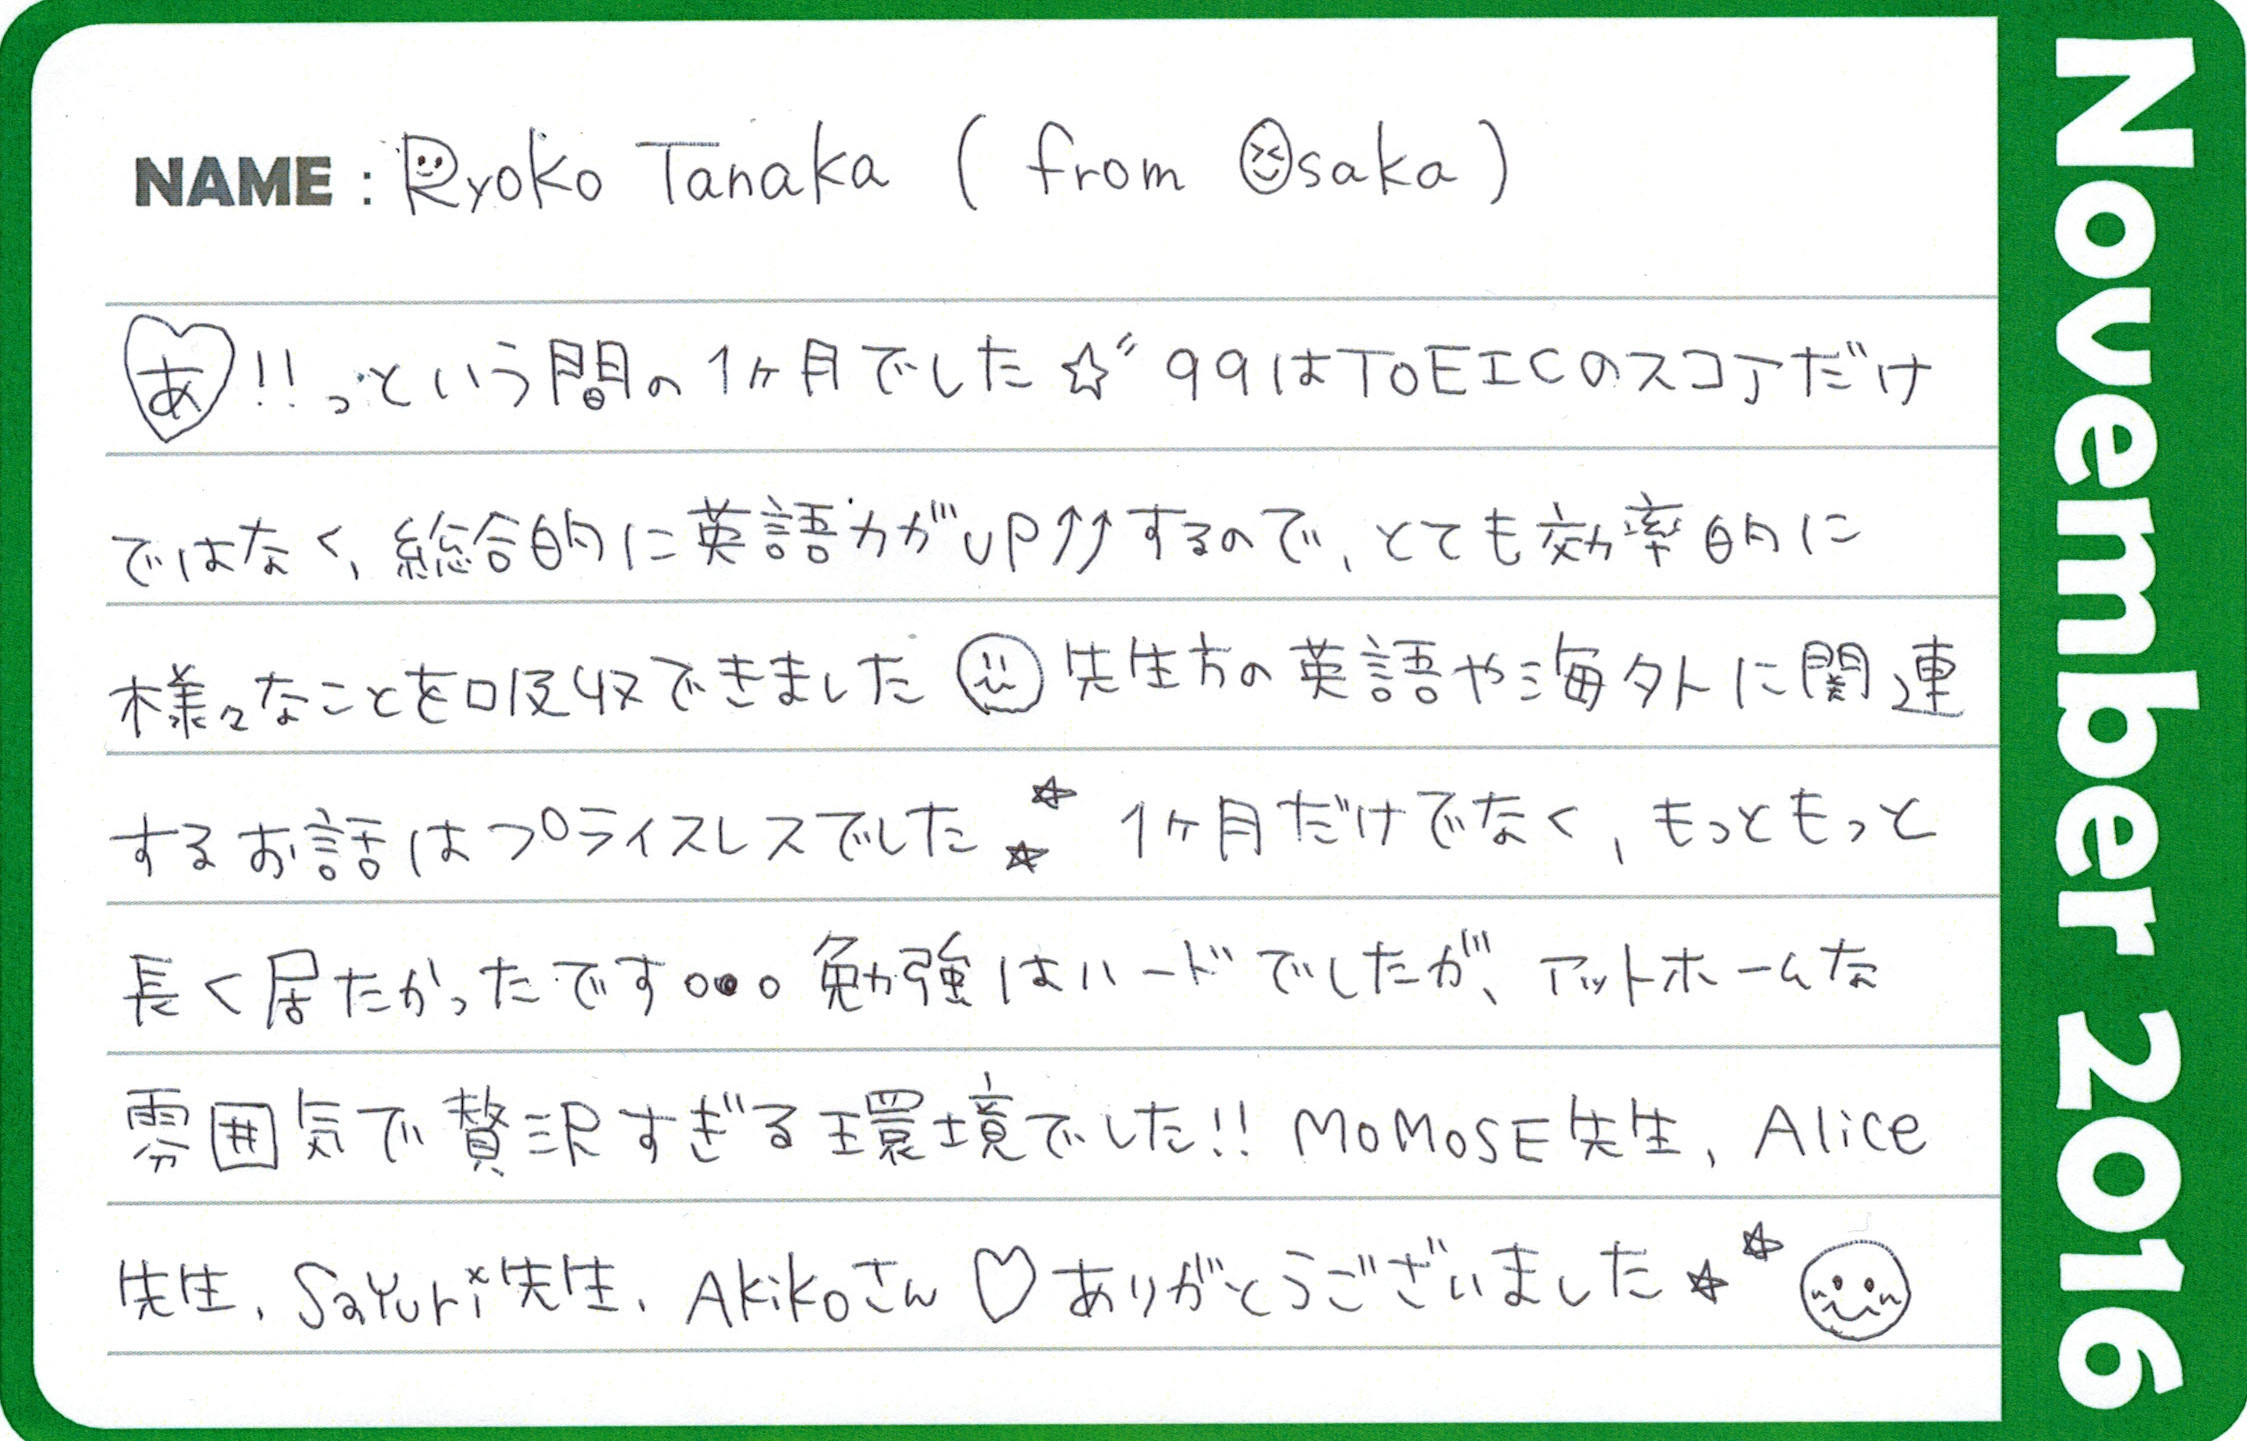 NAME : Ryoko Tanaka ( from Osaka )
あ!!っという間の1ヶ月でした☆〃99はTOEICのスコアだけ
ではなく、総合的に英語力がUP↑↑するので、とても効率的に
様々なことを吸収できました☺先生方の英語や海外に関連
するお話はプライスレスでした☆☆ 1ヶ月だけでなく、もっともっと
長く居たかったです。。。。勉強はハードでしたが、アットホームな
雰囲気で贅沢すぎる環境でした!! MOMOSE先生、Alice
先生、SaYuri先生、AKiKoさん♡ありがとうございました☆☆☺
November 2016